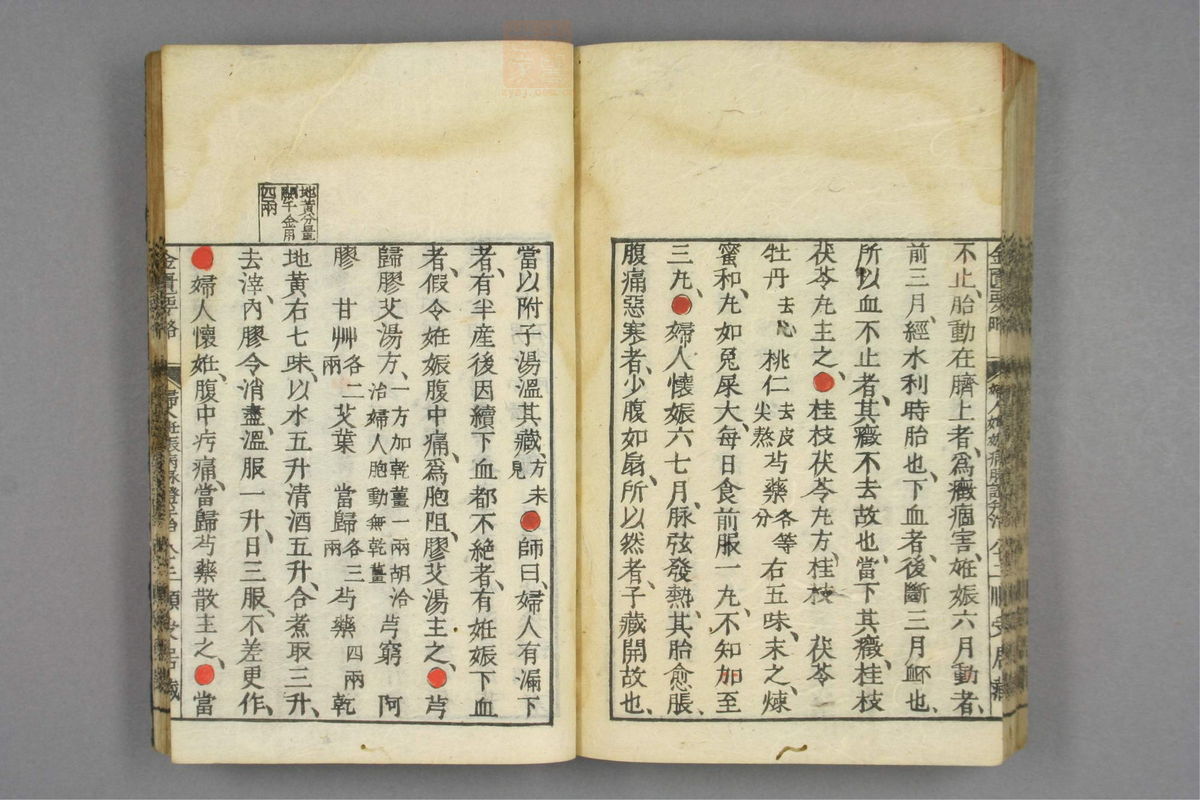 不止、胎動在臍上者、爲癥痼害、妊娠六月動者、
前三月、經水利時胎也、下血者、後斷三月衃也、
所以血不止者、其癥不去故也、當下其癥、桂枝
茯苓丸主之、●桂枝茯苓丸方、桂枝 茯苓
牡丹去心 桃仁去皮尖熬 芍藥各等分 右五味、末之、煉
蜜和、丸如兎屎大、每日食前服一丸、不知加至
三丸、●婦人懷娠六七月、脉弦發熱、其胎愈脹、
腹痛惡寒者、少腹如扇、所以然者、子藏開故也、
當以附子湯溫其藏、方未見●師曰、婦人有漏下
者、有半産後因續下血都不絶者、有妊娠下血
者、假令妊娠腹中痛、爲胞阻、膠艾湯主之、●芎
歸膠艾湯方、一方加乾薑一兩胡洽治婦人胞動無乾薑 芎窮 阿
膠 甘艸各二兩 艾葉 當歸各三兩 芍藥四兩 乾
地黃右七味、以水五升清酒五升、合煮取三升、
去滓、內膠令消盡、溫服一升、日三服、不差更作、
●婦人懷妊、腹中㽲痛、當歸芍藥散主之、●當
地黃分量
闕千金用
四兩
金匱要略